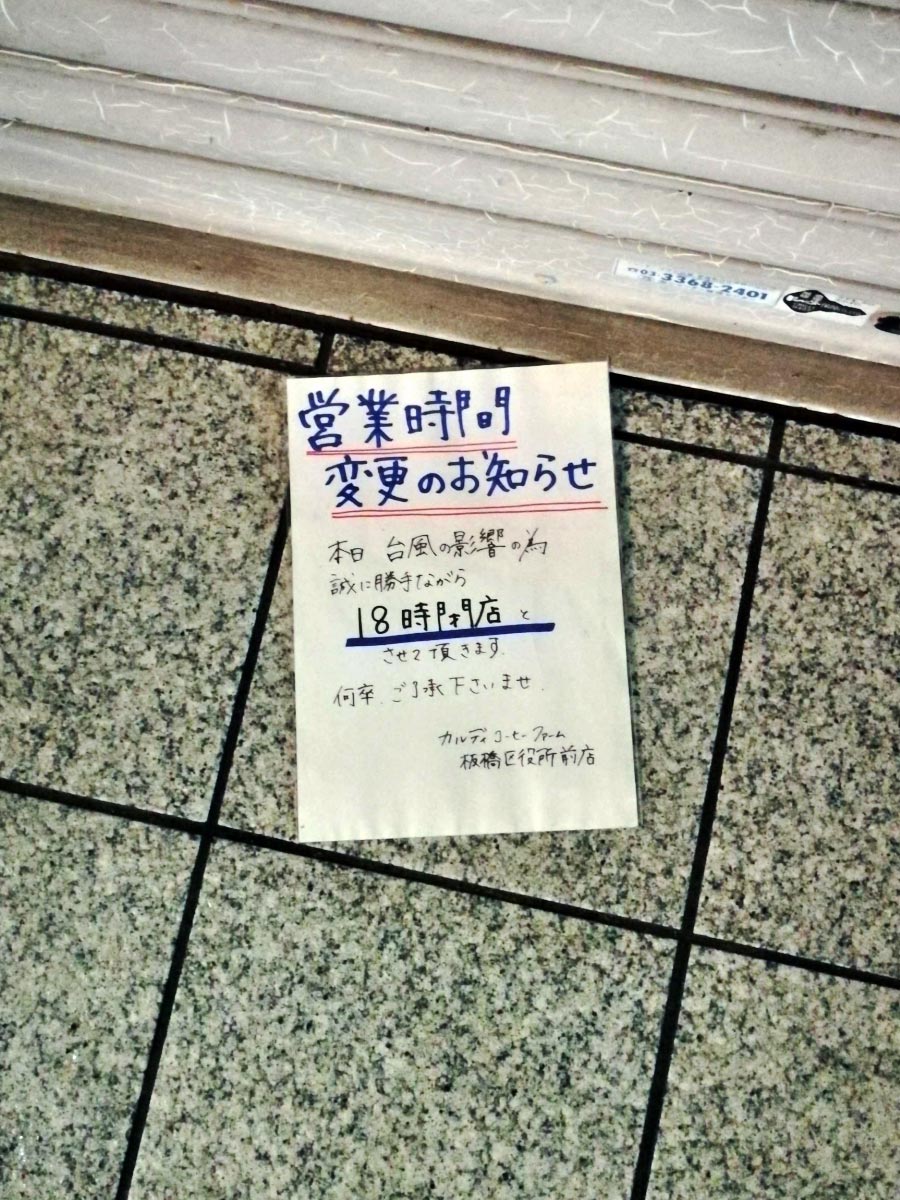 ☎03-3368-2401
営業時間
変更のお知らせ
本日 台風の影響の為
誠に勝手ながら
18時閉店と
させて頂きます.
何卒、ご了承下さいませ.
カルディコーヒーファーム
板橋区役所前店